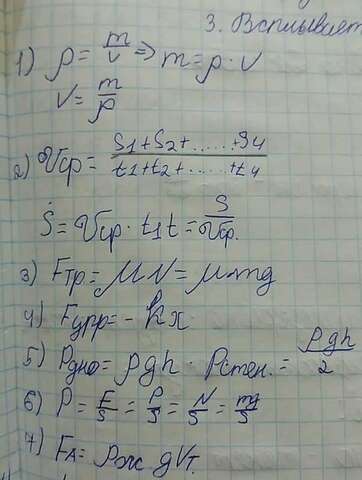 3. Всплывает
1) ρ = m/v => m = ρ · v
v = m/ρ
2) Vср = S1+S2+......+S4 / t1+t2+......+t4
S = Vср · t1 t = S/Vср.
3) Fтр = μN = μmg
4) Fупр = - kx
5) Pдно = ρgh · Pстен. = ρgh/2
6) P = F/S = P/S = N/S = mg/S
7) FA = ρж gVт.